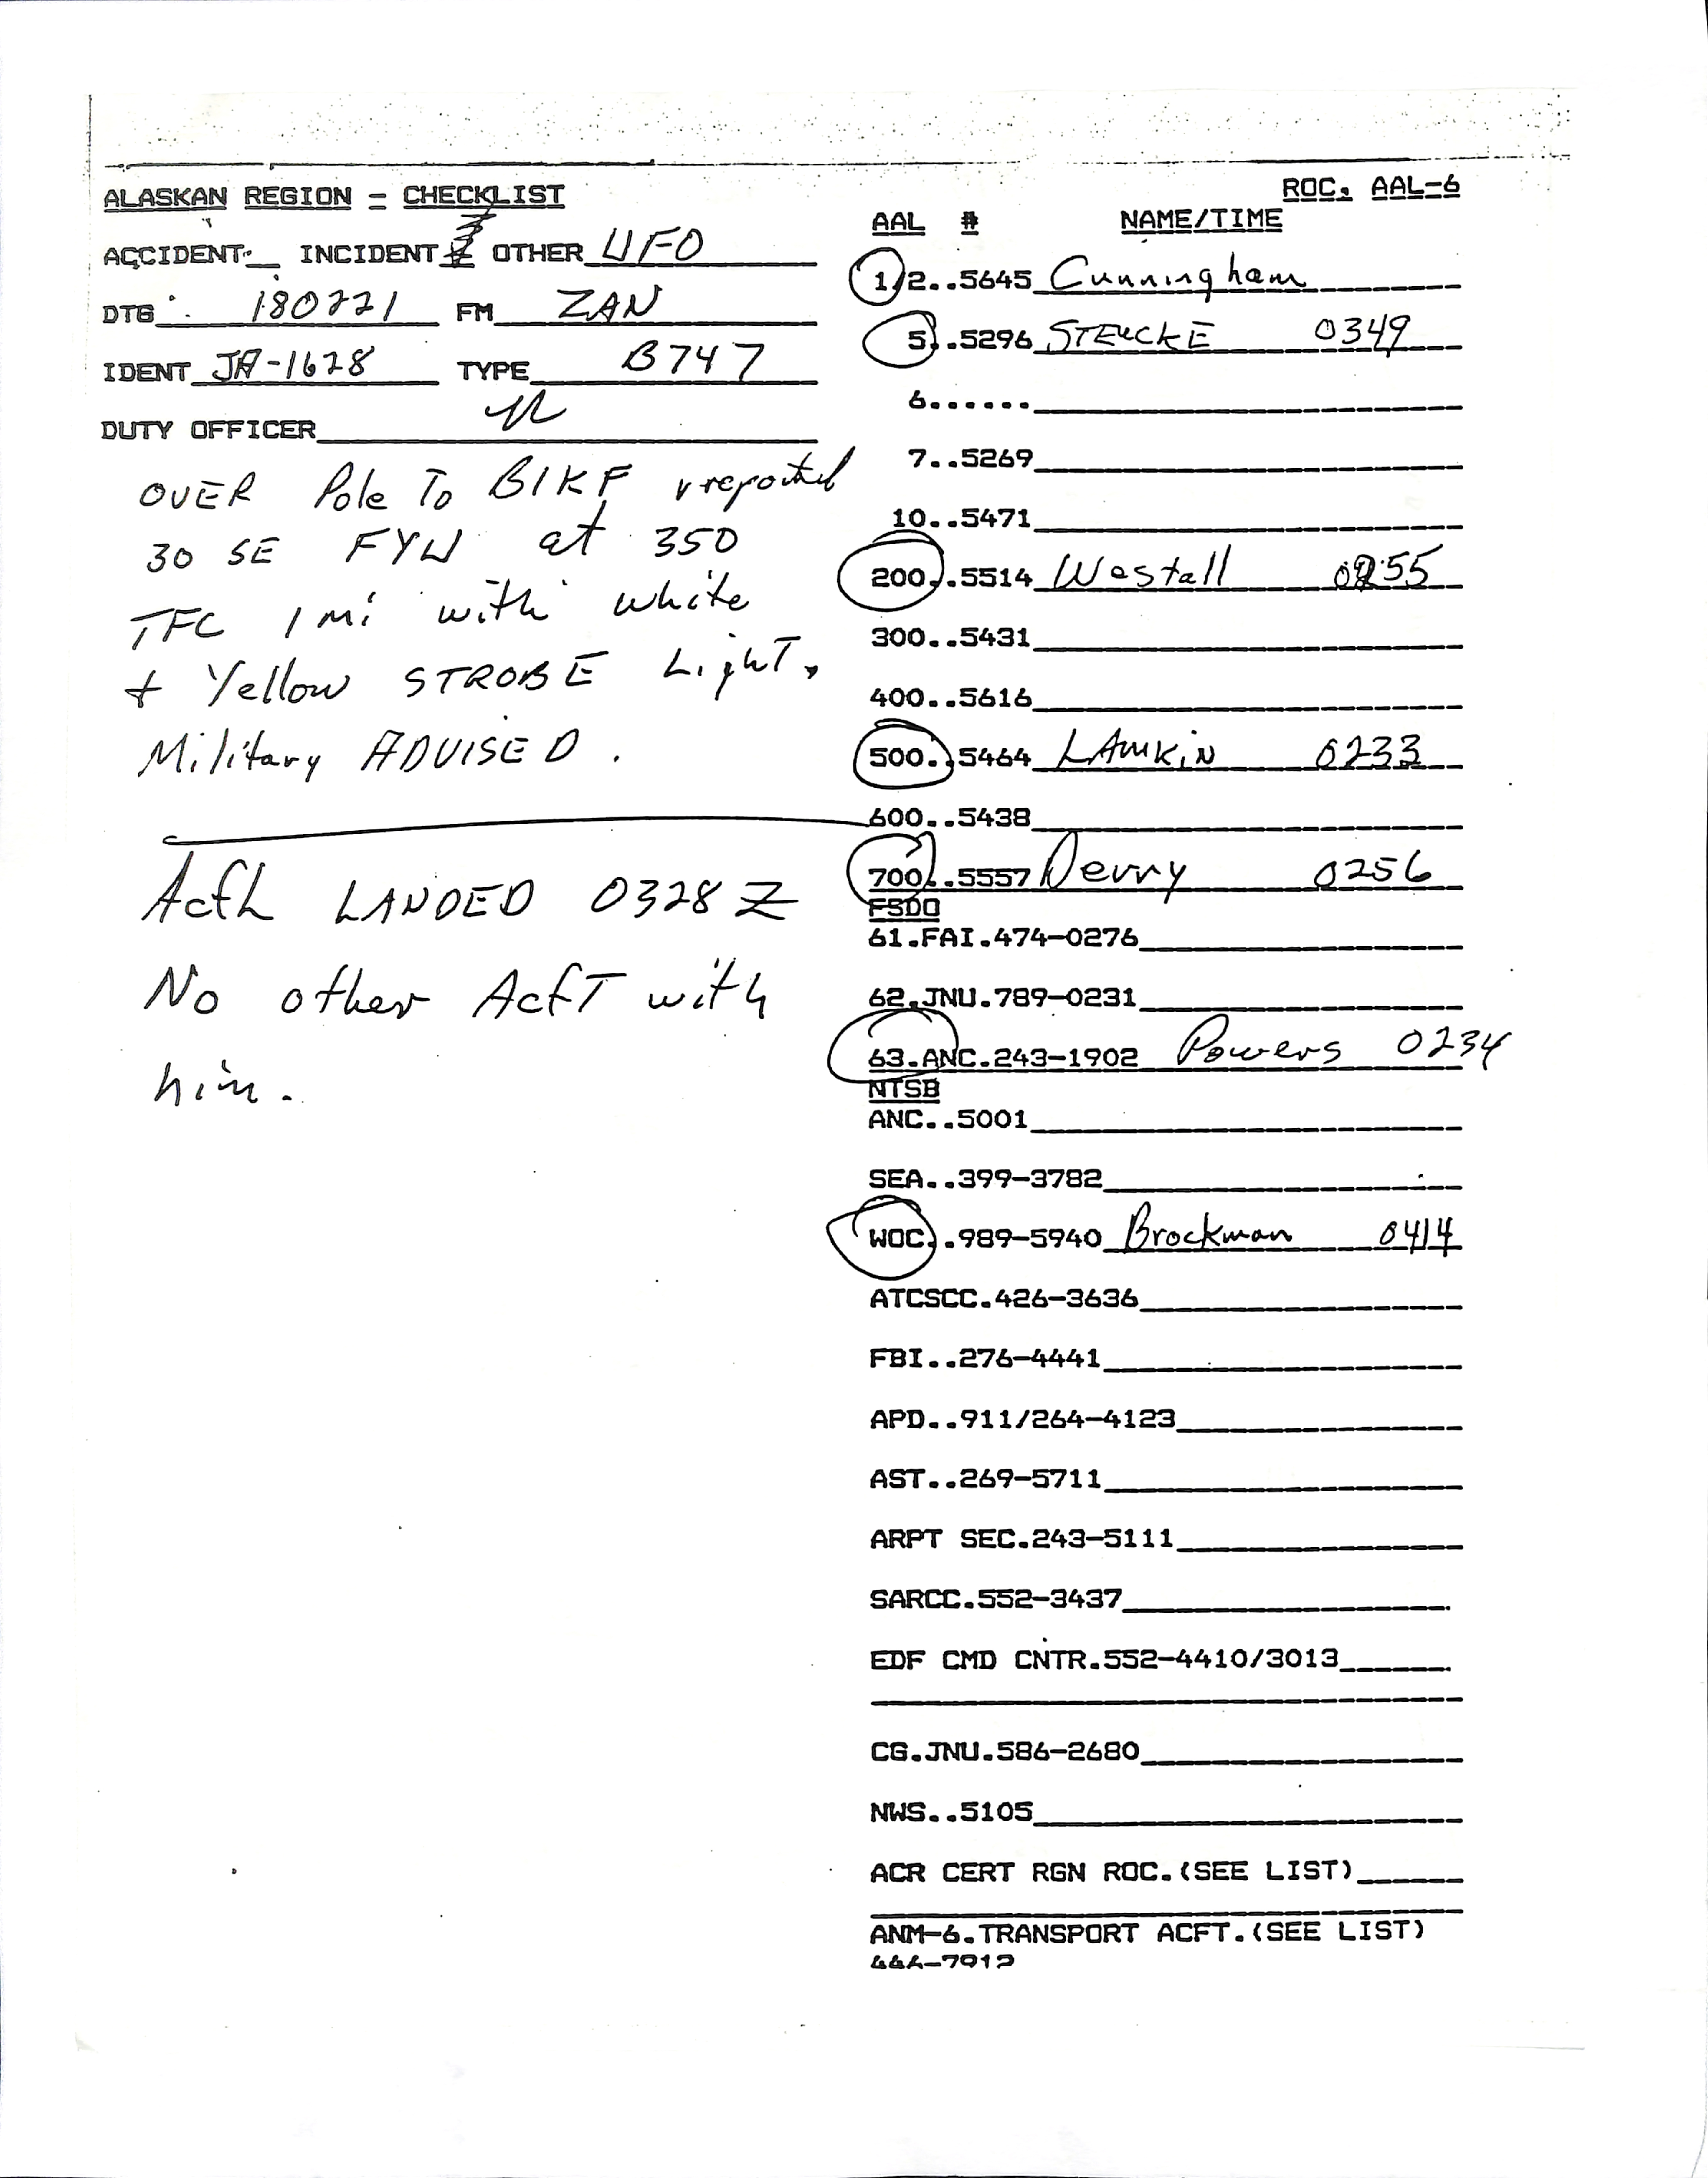 ALASKAN REGION - CHECKLIST
ACCIDENT__ INCIDENT__ OTHER UFO
DTG 180221 FM ZAN
IDENT JA-1628 TYPE B747
DUTY OFFICER
OVER Pole To BIKF reported
30 SE FYU at 350
TFC 1 mi with white
+ Yellow STROBE Light,
Military ADVISED.
Acft LANDED 0328Z
No other AcfT with
him.
ROC. AAL-6
AAL # NAME/TIME
1/2..5645 Cunningham
5..5296 STEUCKE 0349
6......
7..5269
10..5471
200..5514 Westall 0255
300..5431
400..5616
500..5464 LAMKiN 0233
600..5438
700..5557 Derry 0256
FSDO
61.FAI.474-0276
62.JNU.789-0231
63.ANC.243-1902 Powers 0234
NTSB
ANC..5001
SEA..399-3782
WOC..989-5940 Brockman 0414
ATCSCC.426-3636
FBI..276-4441
APD..911/264-4123
AST..269-5711
ARPT SEC.243-5111
SARCC.552-3437
EDF CMD CNTR.552-4410/3013
CG.JNU.586-2680
NWS..5105
ACR CERT RGN ROC.(SEE LIST)
ANM-6.TRANSPORT ACFT.(SEE LIST)